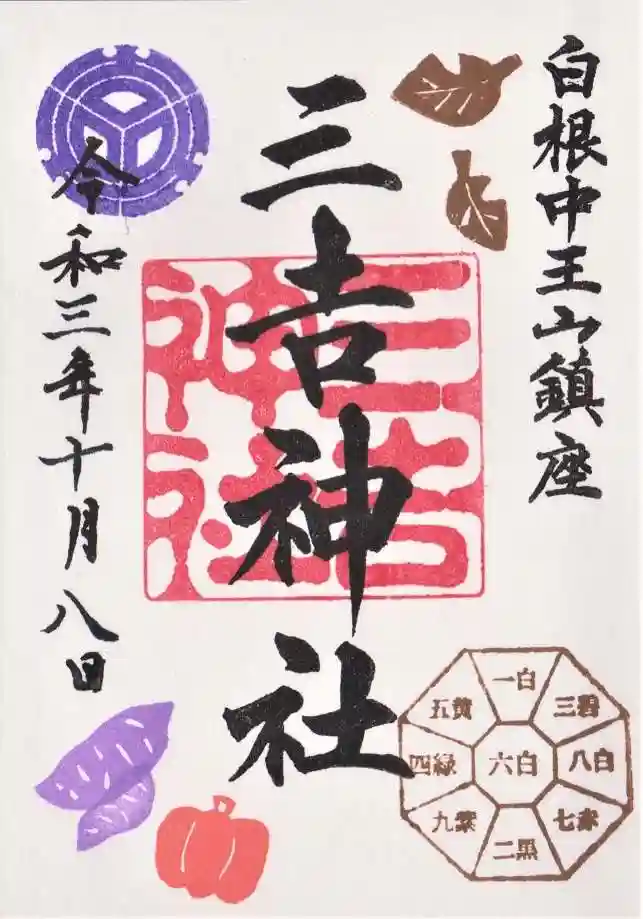 白根中王山鎮座
三吉神社
三吉神社
令和三年十月八日
一白
三碧
八白
七赤
二黒
九紫
四緑
五黄
六白